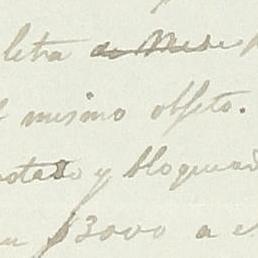 letra
l mismo objeto.
otado y bloquead
$3000 a e